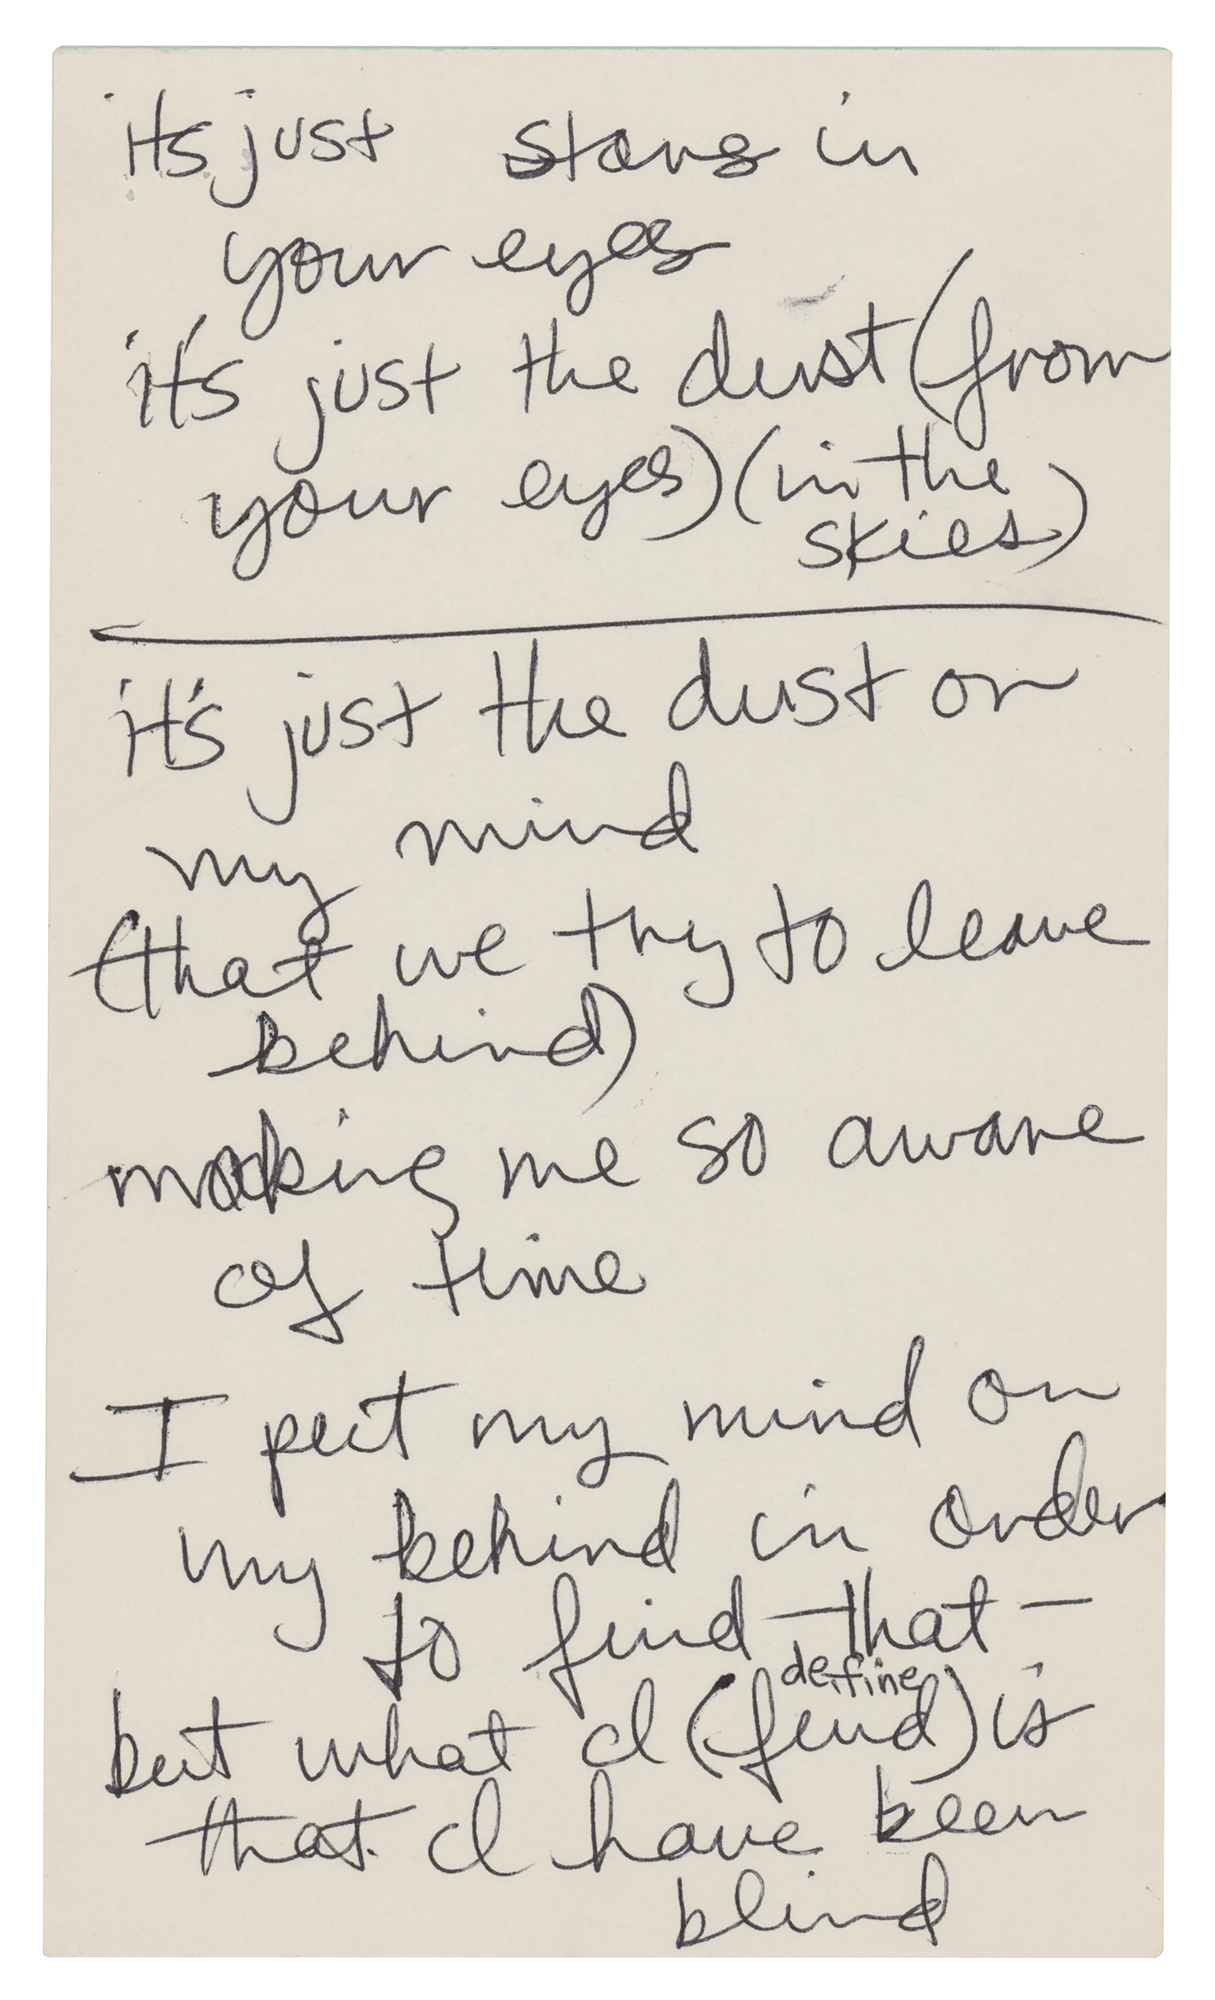 its just stars in
your eyes
it's just the dust (from
your eyes) (in the
skies)
it's just the dust on
my mind
(that we try to leave
behind)
making me so aware
of time
I put my mind on
my behind in order
to find - that -
define
but what I (find) is
that I have been
blind